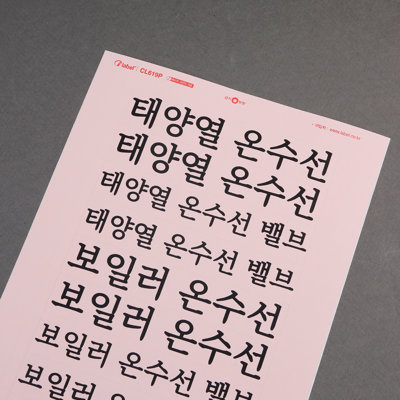 label CL619P
www.label.co.kr
태양열 온수선
태양열 온수선
태양열 온수선 밸브
태양열 온수선 밸브
보일러 온수선
보일러 온수선
보일러 온수선 밸브
보일러 온수선